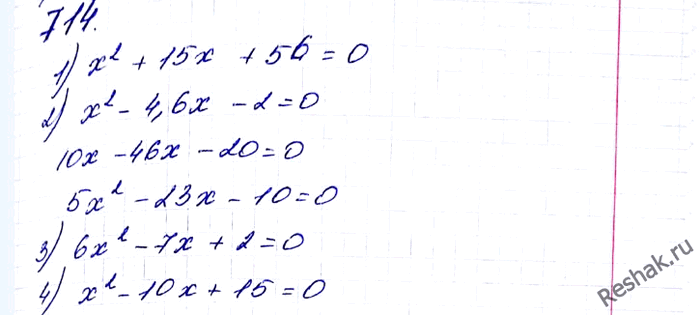 714.
1) x² + 15x + 56 = 0
2) x² - 4,6x - 2 = 0
10x - 46x - 20 = 0
5x² - 23x - 10 = 0
3) 6x² - 7x + 2 = 0
4) x² - 10x + 15 = 0
Reshak.ru